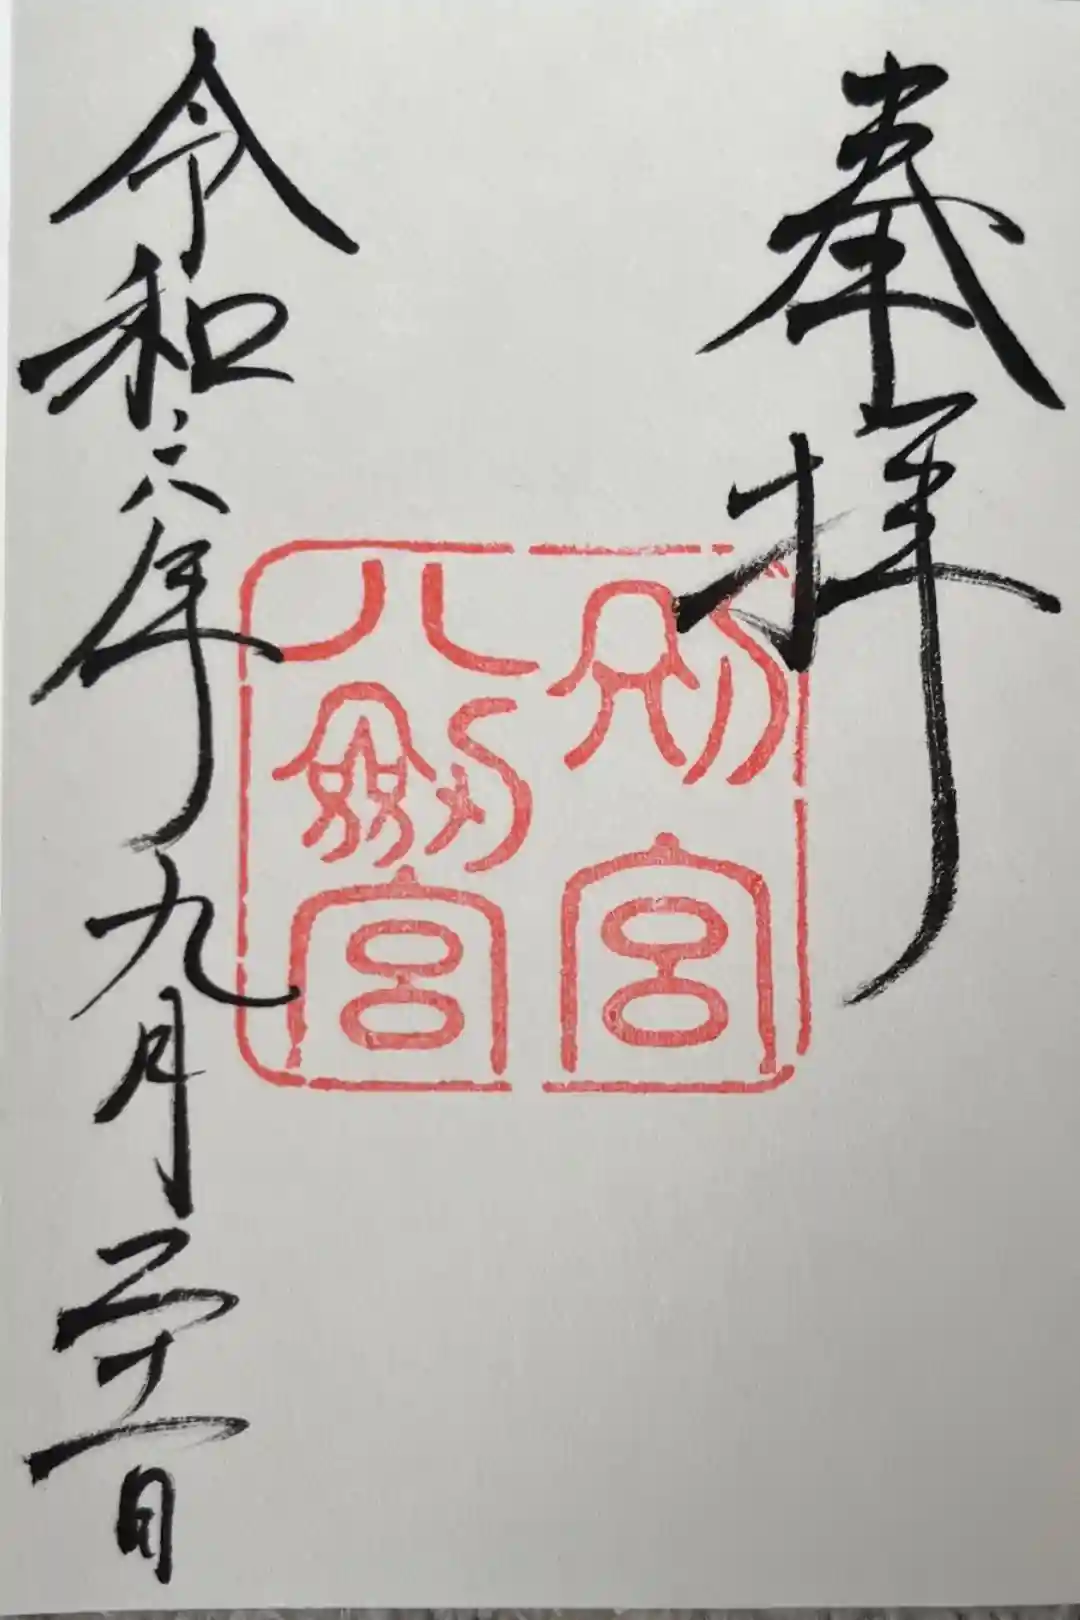 奉拝
別宮
八劔宮
令和六年九月二十一日